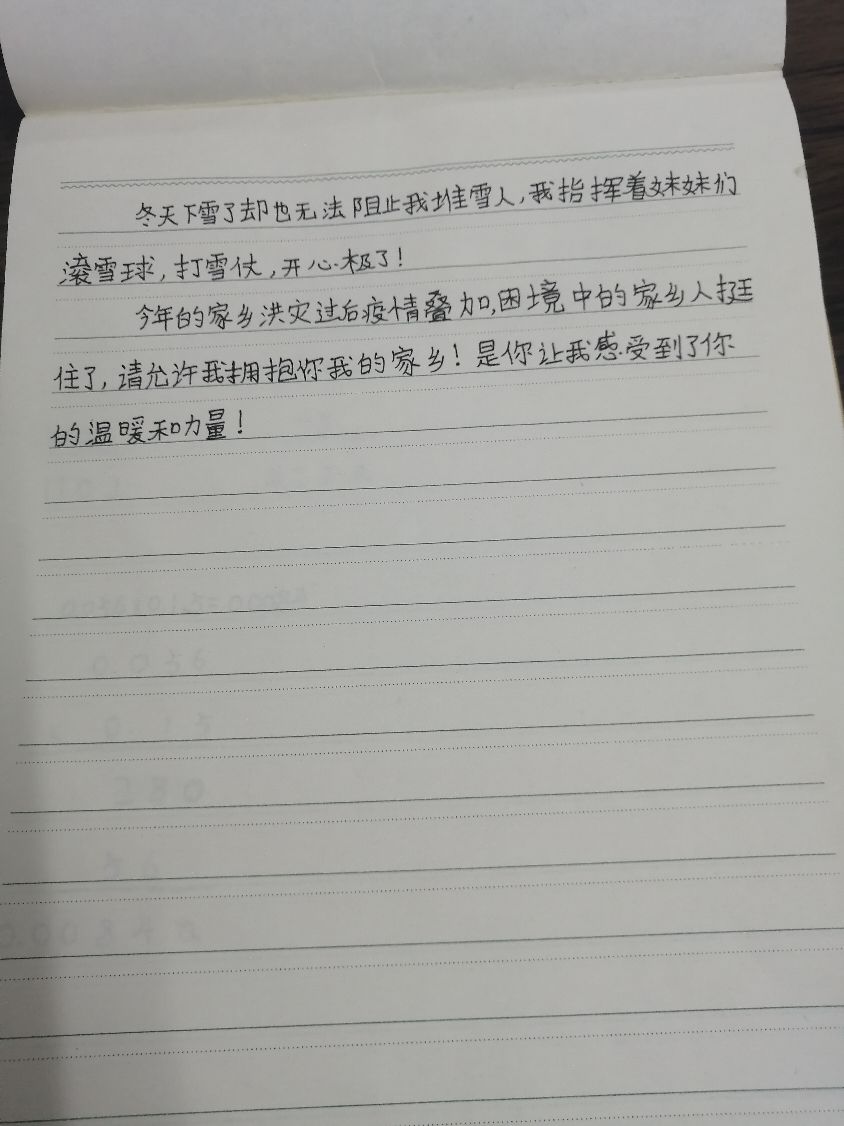 冬天下雪了却也无法阻止我堆雪人,我指挥着妹妹们
滚雪球,打雪仗,开心极了!
今年的家乡洪灾过后疫情叠加,困境中的家乡人挺
住了,请允许我拥抱你我的家乡!是你让我感受到了你
的温暖和力量!
0.056
0.15
280
56
0.00840